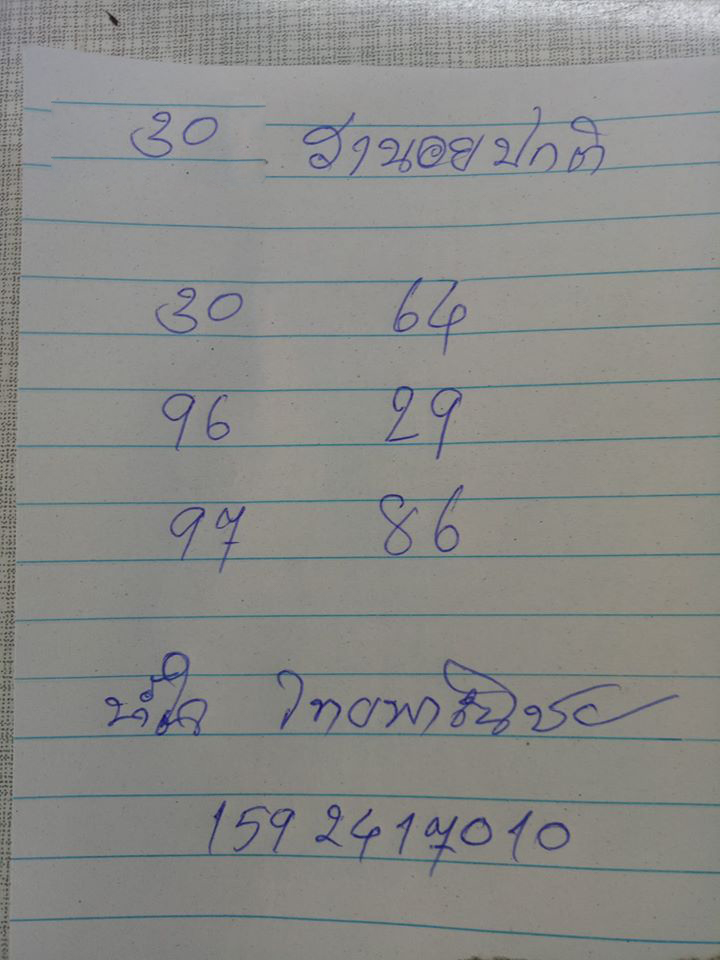 30 ฮานอยปกติ
30 64
96 29
97 86
น้ำใจ ไทยพาณิชย์
159 2417010